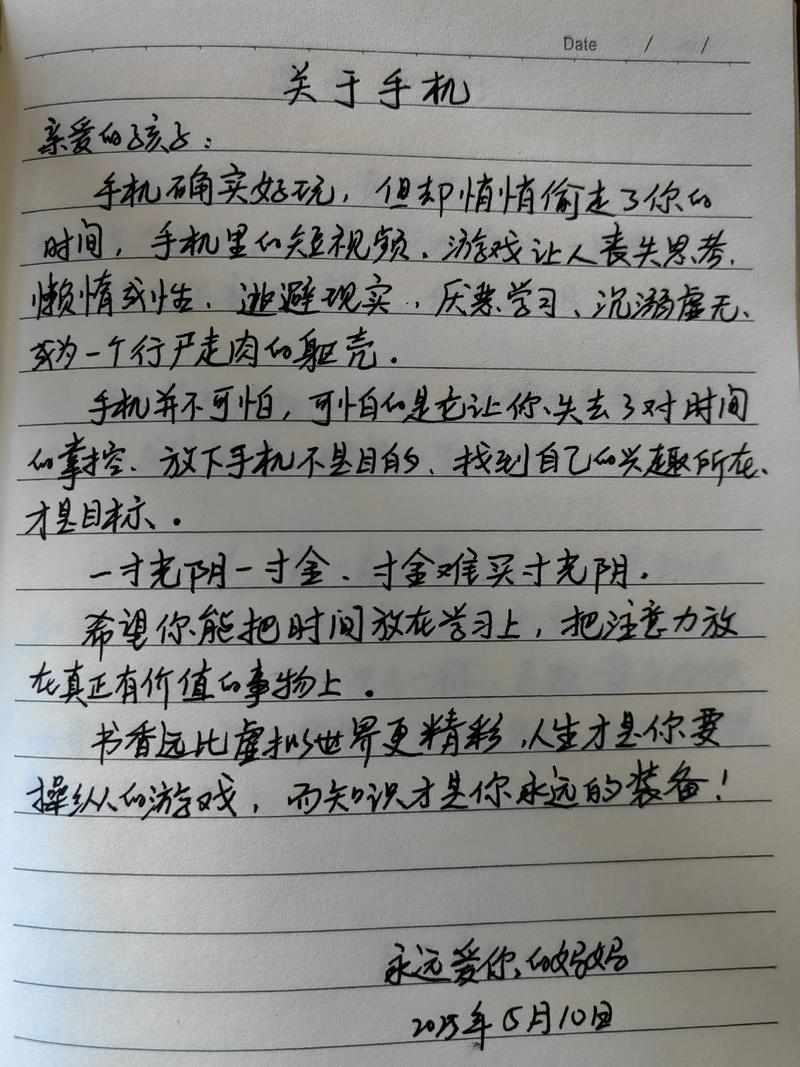 Date / /
关于手机
亲爱的孩子：
手机确实好玩，但却悄悄偷走了你的
时间，手机里的短视频．游戏让人丧失思考．
懒惰成性．逃避现实．厌恶学习、沉溺虚无、
成为一个行尸走肉的躯壳．
手机并不可怕，可怕的是它让你失去了对时间
的掌控．放下手机不是目的．找到自己的兴趣所在、
才是目标．
一寸光阴一寸金、寸金难买寸光阴．
希望你能把时间放在学习上，把注意力放
在真正有价值的事物上．
书香远比虚拟世界更精彩．人生才是你要
操纵的游戏，而知识才是你永远的装备！
永远爱你的妈妈
2025年5月10日